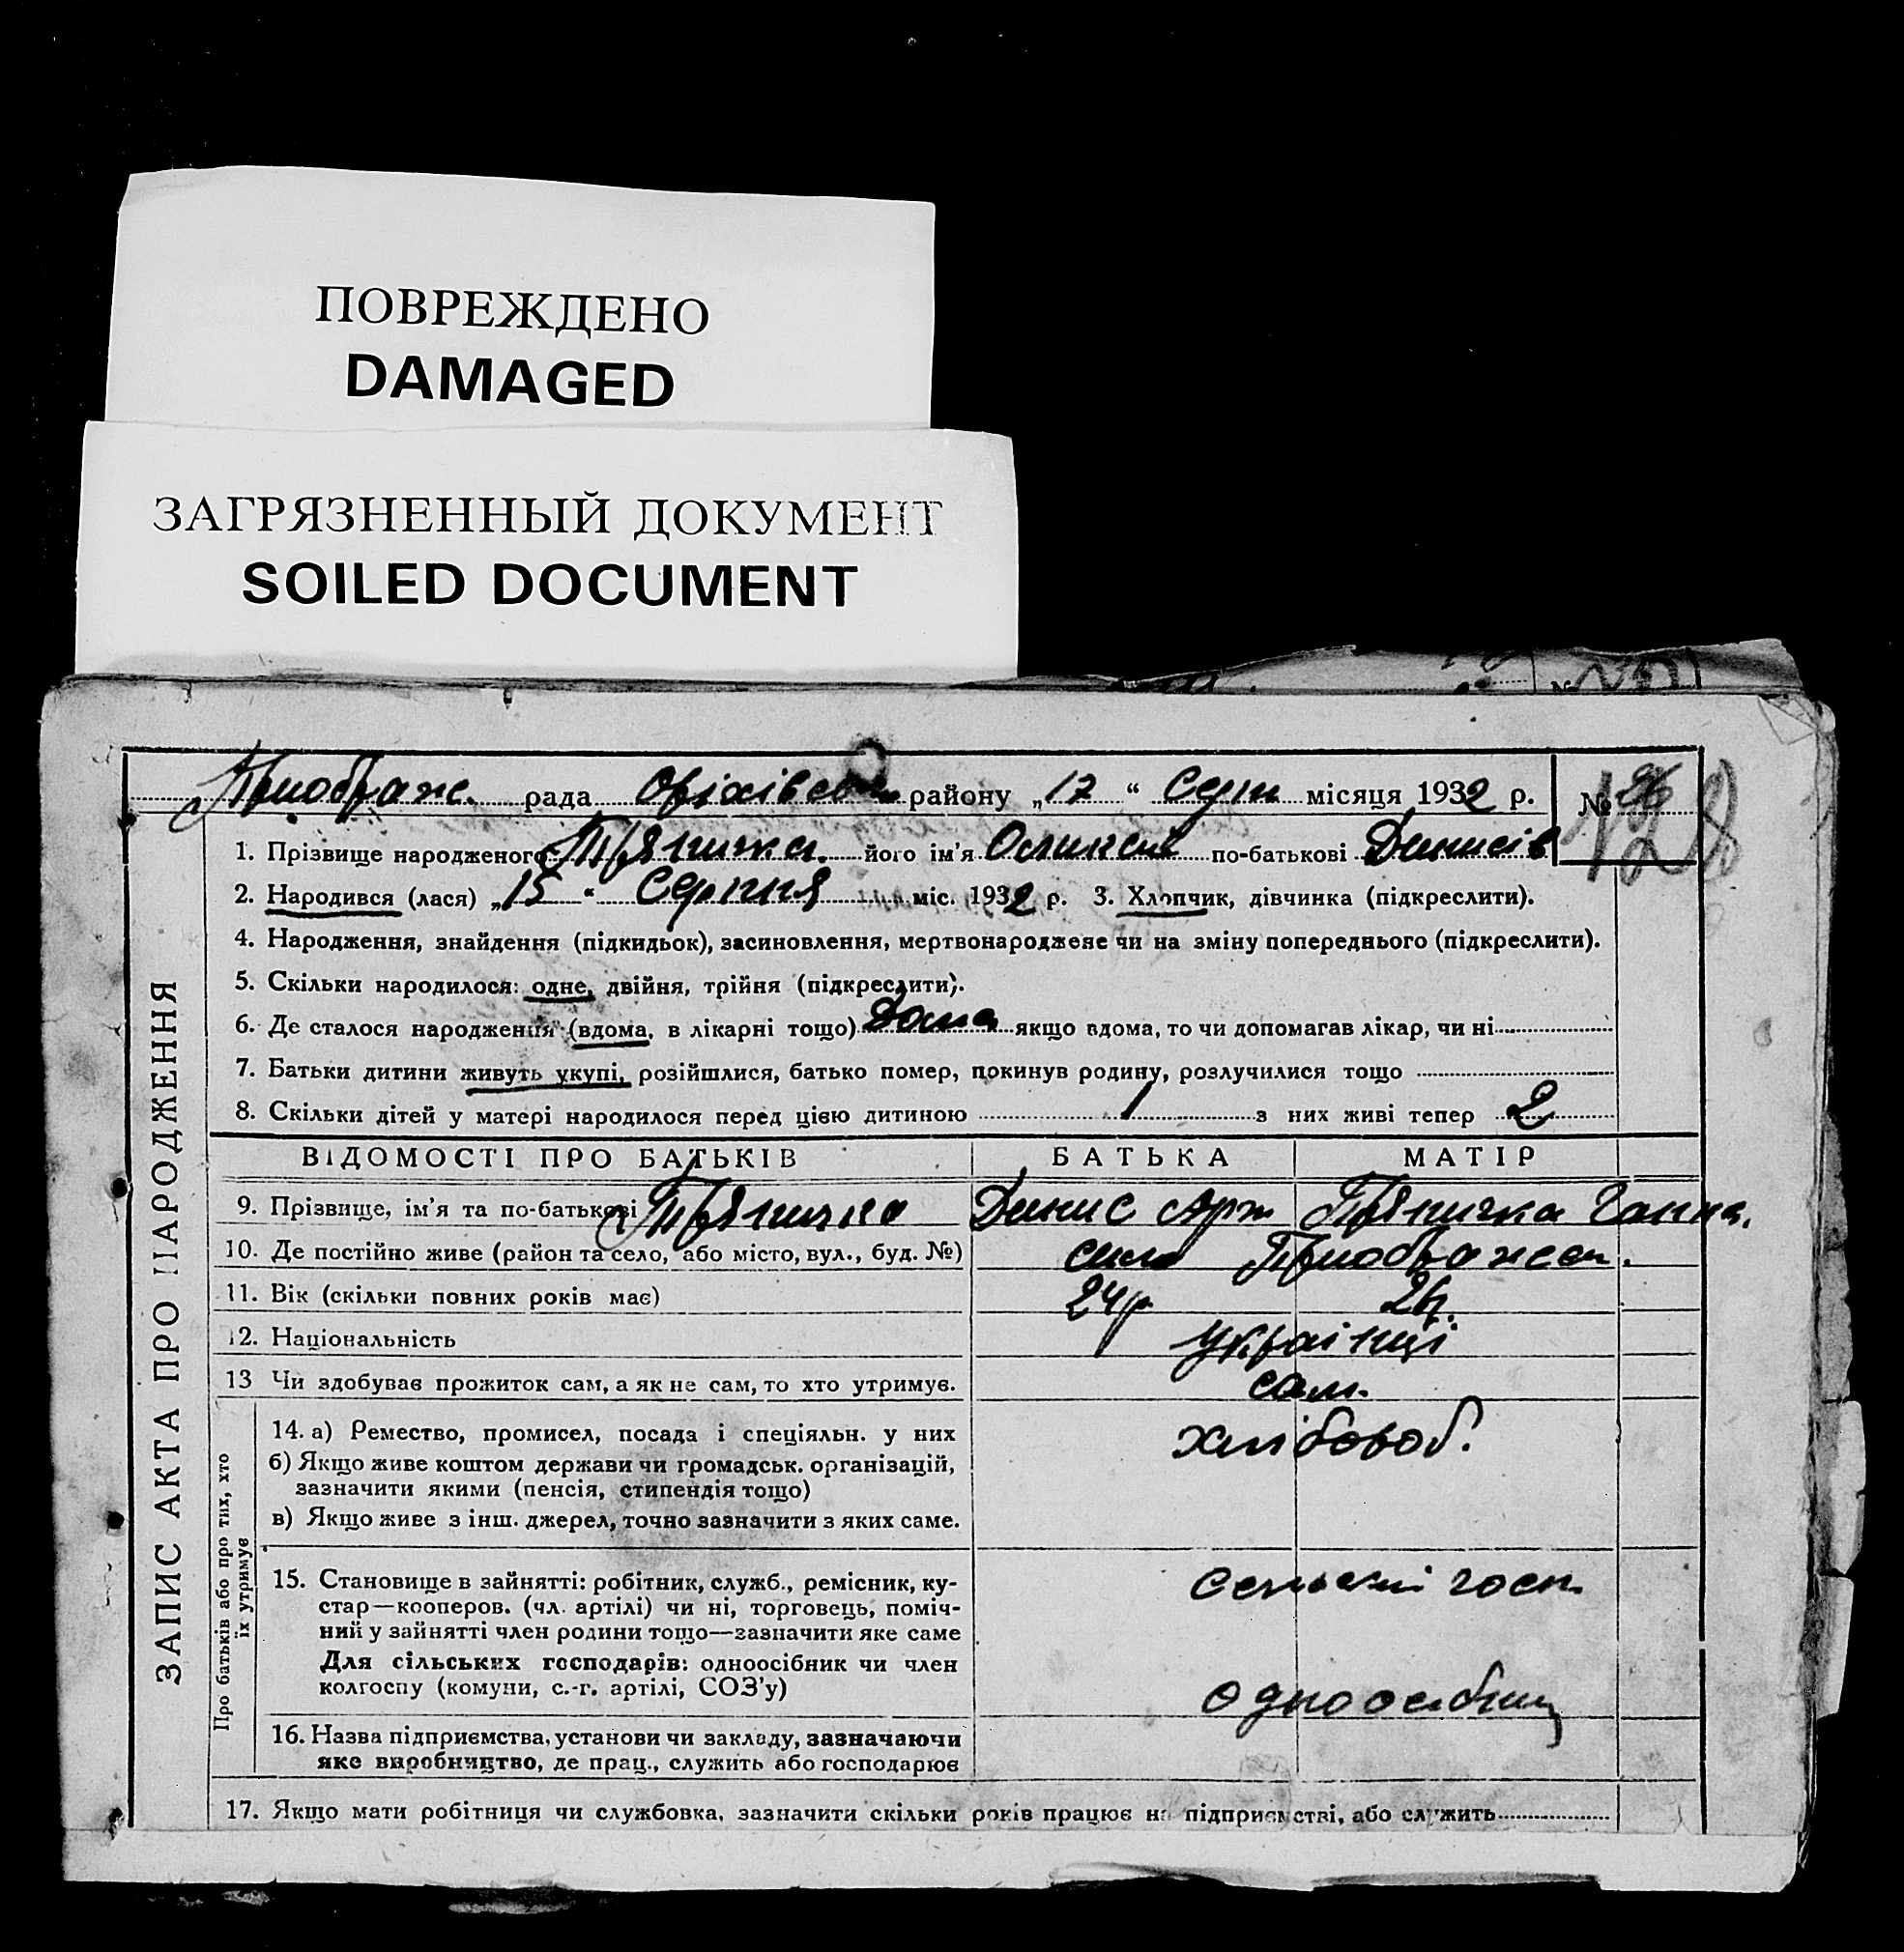 ПОВРЕЖДЕНО
DAMAGED
ЗАГРЯЗНЕННЫЙ ДОКУМЕНТ
SOILED DOCUMENT
Приображ. рада Оріхівськ району „17“ Серп місяця 1932 р. № 26
128
1. Прізвище народженого його ім'я по-батькові Денисів
2. Народився (лася) „15“ Серпня міс. 1932 р. 3. Хлопчик, дівчинка (підкреслити).
4. Народження, знайдення (підкидьок), засиновлення, мертвонароджене чи на зміну попереднього (підкреслити).
5. Скільки народилося: одне, двійня, трійня (підкреслити).
6. Де сталося народження (вдома, в лікарні тощо) Дома якщо вдома, то чи допомагав лікар, чи ні
7. Батьки дитини живуть укупі, розійшлися, батько помер, покинув родину, розлучилися тощо
8. Скільки дітей у матері народилося перед цією дитиною 1 з них живі тепер 2
ЗАПИС АКТА ПРО НАРОДЖЕННЯ
ВІДОМОСТІ ПРО БАТЬКІВ БАТЬКА МАТІР
9. Прізвище, ім'я та по-батькові Пряничка Денис Арт Пряничка Ганна.
10. Де постійно живе (район та село, або місто, вул., буд. №) село Приображен.
11. Вік (скільки повних років має) 24р
12. Національність українці
13 Чи здобуває прожиток сам, а як не сам, то хто утримує. сам.
Про батьків або про тих, хто
їх утримує
14. а) Ремество, промисел, посада і спеціяльн. у них хлібороб.
б) Якщо живе коштом держави чи громадськ. організацій,
зазначити якими (пенсія, стипендія тощо)
в) Якщо живе з інш. джерел, точно зазначити з яких саме.
15. Становище в зайнятті: робітник, служб., ремісник, ку-
стар—кооперов. (чл. артілі) чи ні, торговець, поміч-
ний у зайнятті член родини тощо—зазначити яке саме
Для сільських господарів: одноосібник чи член
колгоспу (комуни, с.-г. артілі, СОЗ'у)
16. Назва підприємства, установи чи закладу, зазначаючи
яке виробництво, де прац., служить або господарює
17. Якщо мати робітниця чи службовка, зазначити скільки років працює на підприємстві, або служить